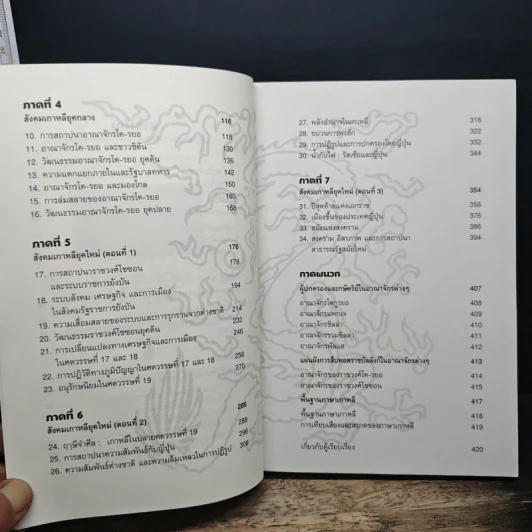 ภาคที่ 4
สังคมเกาหลียุคกลาง 116
10. การสถาปนาอาณาจักรโค-รยอ 118
11. อาณาจักรโค-รยอ และชาวชิตัน 130
12. วัฒนธรรมอาณาจักรโค-รยอ ยุคต้น 136
13. ความแตกแยกภายในและรัฐบาลทหาร 142
14. อาณาจักรโค-รยอ และมองโกล 150
15. การล่มสลายของอาณาจักรโค-รยอ 160
16. วัฒนธรรมอาณาจักรโค-รยอ ยุคปลาย 168
ภาคที่ 5
สังคมเกาหลียุคใหม่ (ตอนที่ 1) 176
17. การสถาปนาราชวงศ์โชซอน 178
และระบบราชการยังบัน
18. ระบบสังคม เศรษฐกิจ และการเมือง 194
ในสังคมรัฐราชการยังบัน
19. ความเสื่อมสลายของระบบและการรุกรานจากต่างชาติ 214
20. วัฒนธรรมราชวงศ์โชซอนยุคต้น 236
21. การเปลี่ยนแปลงทางเศรษฐกิจและการเมือง 246
ในศตวรรษที่ 17 และ 18
22. การปฏิวัติทางภูมิปัญญาในศตวรรษที่ 17 และ 18 256
23. อนุรักษนิยมในศตวรรษที่ 19 270
ภาคที่ 6
สังคมเกาหลียุคใหม่ (ตอนที่ 2) 286
24. ฤๅษีจำศีล : เกาหลีในปลายศตวรรษที่ 19 288
25. การสถาปนาความสัมพันธ์กับญี่ปุ่น 296
26. ความสัมพันธ์ต่างชาติ และความล้มเหลวในการปฏิรูป 308
27. พลังอำนาจในเกาหลี 316
28. ขบวนการทงฮัก 322
29. การปฏิรูปและการปกครองโดยญี่ปุ่น 332
30. น้ำกับไฟ : รัสเซียและญี่ปุ่น 344
ภาคที่ 7
สังคมเกาหลียุคใหม่ (ตอนที่ 3) 354
31. ปีสุดท้ายแห่งเอกราช 356
32. เมืองขึ้นของประเทศญี่ปุ่น 376
33. สมัยแห่งสงคราม 386
34. สงคราม อิสรภาพ และการสถาปนา 394
สาธารณรัฐสมัยใหม่
ภาคผนวก
ผู้ปกครองและกษัตริย์ในอาณาจักรต่างๆ 407
อาณาจักรโคกูรยอ 408
อาณาจักรแพกเจ 409
อาณาจักรชิลลา 410
อาณาจักรรวมชิลลา 411
อาณาจักรพัลแฮ 412
แผนผังการสืบทอดราชบัลลังก์ในอาณาจักรต่างๆ 413
อาณาจักรของราชวงศ์โค-รยอ 414
อาณาจักรของราชวงศ์โชซอน 415
พื้นฐานภาษาเกาหลี 417
พื้นฐานภาษาเกาหลี 418
การเทียบเสียงและสะกดของภาษาเกาหลี 419
เกี่ยวกับผู้เรียบเรียง 420